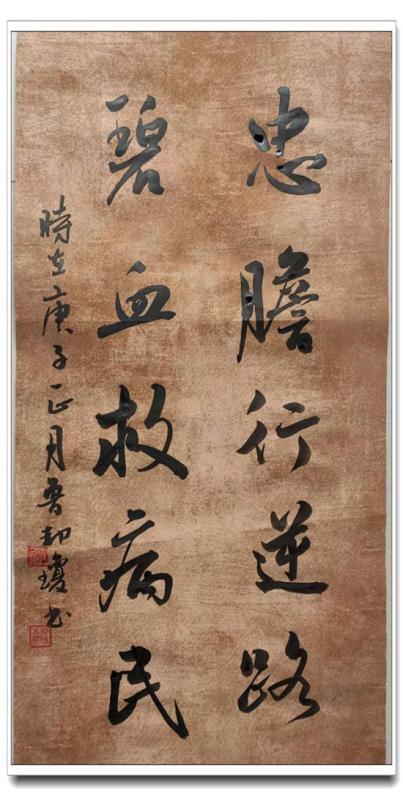 忠膽行逆路
碧血救病民
時在庚子正月魯劫瓊書